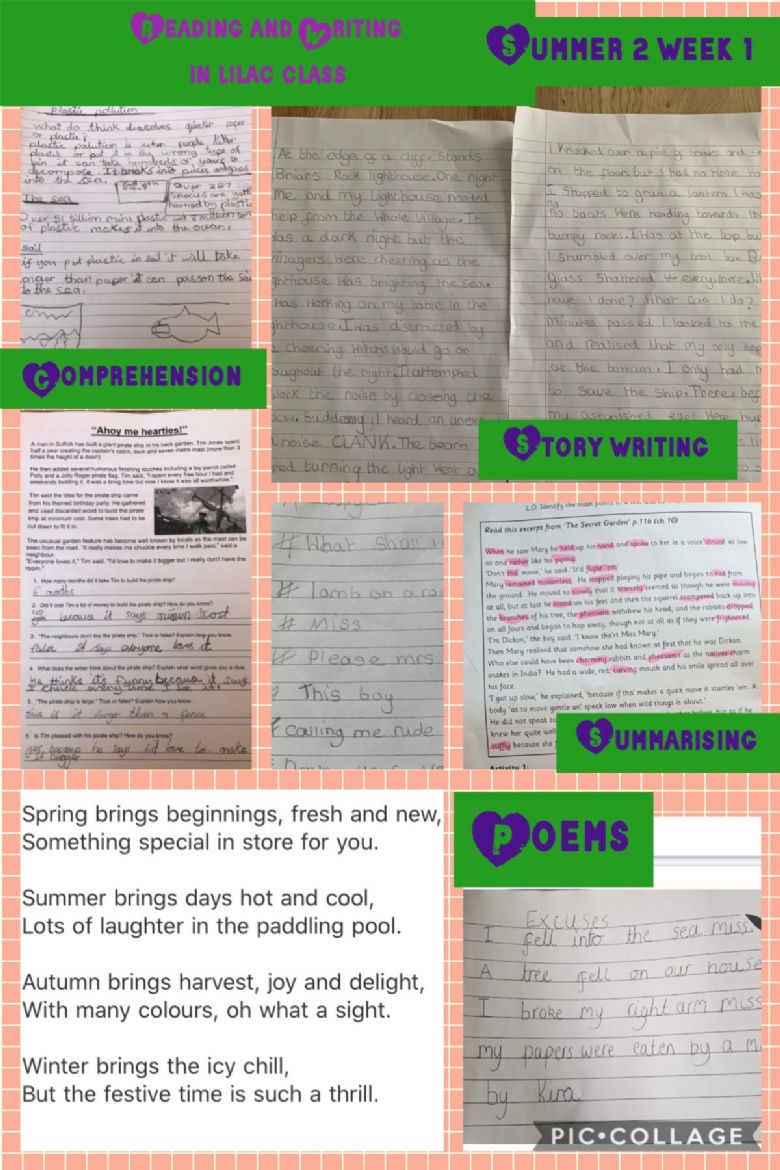 Reading and Writing
in Lilac Class
Summer 2 Week 1
Plastic pollution
What do think dissolves quicker paper
or plastic?
plastic polution is when people litter
plastic or put it in the wrong type of
bin it can take hundreds of years to
decompose. It breaks into pieces and goes
into the sea.
The sea
Over 267
species are
harmed by plastic
of plastic makes it into the ocean.
soil
if you put plastic in soil it will take
onger than paper it can poison the soi
to the sea.
At the edge of a cliff. Stands
Brian's Rock lighthouse. One night
me and my lighthouse
help from the whole village. It
was a dark night but the
villagers were cheering as the
ghthouse was brighting the sea.
was working on my table in the
ghthouse. I was distracted by
cheering which would go on
oughout the night. I attempted
block the noise by closeing the
Suddenly, I heard an unex
noise CLANK. The beam
turning the light went o
I knocked over a pile of books and
on the floor but I had no time to
I stopped to grab a lantern I has
no boats were heading towards th
bumpy rocks. I was at the top bu
I stumbled over my tool box B
Glass shattered everywhere.
have I done? What can I do?
Minutes passed I looked to the
and realised that my only hop
at the bottom. I only had m
to save the ship. There, bef
my astonished eyes were hu
Comprehension
Story Writing
"Ahoy me hearties!"
A man in Suffolk has built a giant pirate ship in his back garden. Tim Jones spent
half a year creating the captain's cabin, deck and seven metre mast (more than 3
times the height of a door!)
He then added several humorous finishing touches including a toy parrot called
Polly and a Jolly Roger pirate flag. Tim said, "I spent every free hour I had and
weekends building it. It was a tiring time but now I know it was all worthwhile."
Tim said the idea for the pirate ship came
from his themed birthday party. He gathered
and used discarded wood to build the pirate
ship at minimum cost. Some trees had to be
cut down to fit it in.
The unusual garden feature has become well known by locals as the mast can be
seen from the road. "It really makes me chuckle every time I walk past," said a
neighbour.
"Everyone loves it," Tim said. "I'd love to make it bigger but I really don't have the
room."
1. How many months did it take Tim to build the pirate ship?
6 months
2. Did it cost Tim a lot of money to build the pirate ship? How do you know?
because it says cost
3. "The neighbours don't like the pirate ship." True or false? Explain how you know.
False it says everyone loves it
4. What does the writer think about the pirate ship? Explain what word gives you a clue.
He thinks its funny because it says
I chuckle every time I see it!
5. "The pirate ship is large." True or false? Explain how you know.
true it is larger than a fence
6. Is Tim pleased with his pirate ship? How do you know?
yes because he says id love to make
it bigger
# What shall
# lamb on a
# Miss
# Please mrs
# This boy
calling me rude
L.O. Identify the main points
Read this excerpt from 'The Secret Garden' p.116 (ch. 10)
When he saw Mary he held up his hand and spoke to her in a voice almost as low
as and rather like his piping.
'Don't tha' move,' he said. 'It'd flight 'em.'
Mary remained motionless. He stopped playing his pipe and began to rise from
the ground. He moved so slowly that it scarcely seemed as though he were moving
at all, but at last he stood on his feet and then the squirrel scampered back up into
the branches of his tree, the pheasant withdrew his head, and the rabbits dropped
on all fours and began to hop away, though not at all as if they were frightened.
'I'm Dickon,' the boy said. 'I know tha'rt Miss Mary.'
Then Mary realised that somehow she had known at first that he was Dickon.
Who else could have been charming rabbits and pheasants as the natives charm
snakes in India? He had a wide, red, curving mouth and his smile spread all over
his face.
'I got up slow,' he explained, 'because if tha' makes a quick move it startles 'em. A
body 'as to move gentle an' speak low when wild things is about.'
He did not speak to
knew her quite well
stiffly because she
Summarising
Activity 1:
Spring brings beginnings, fresh and new,
Something special in store for you.
Summer brings days hot and cool,
Lots of laughter in the paddling pool.
Autumn brings harvest, joy and delight,
With many colours, oh what a sight.
Winter brings the icy chill,
But the festive time is such a thrill.
Poems
Excuses
I fell into the sea miss.
A tree fell on our house
I broke my right arm miss
my papers were eaten by a m
by Kira
PIC•COLLAGE